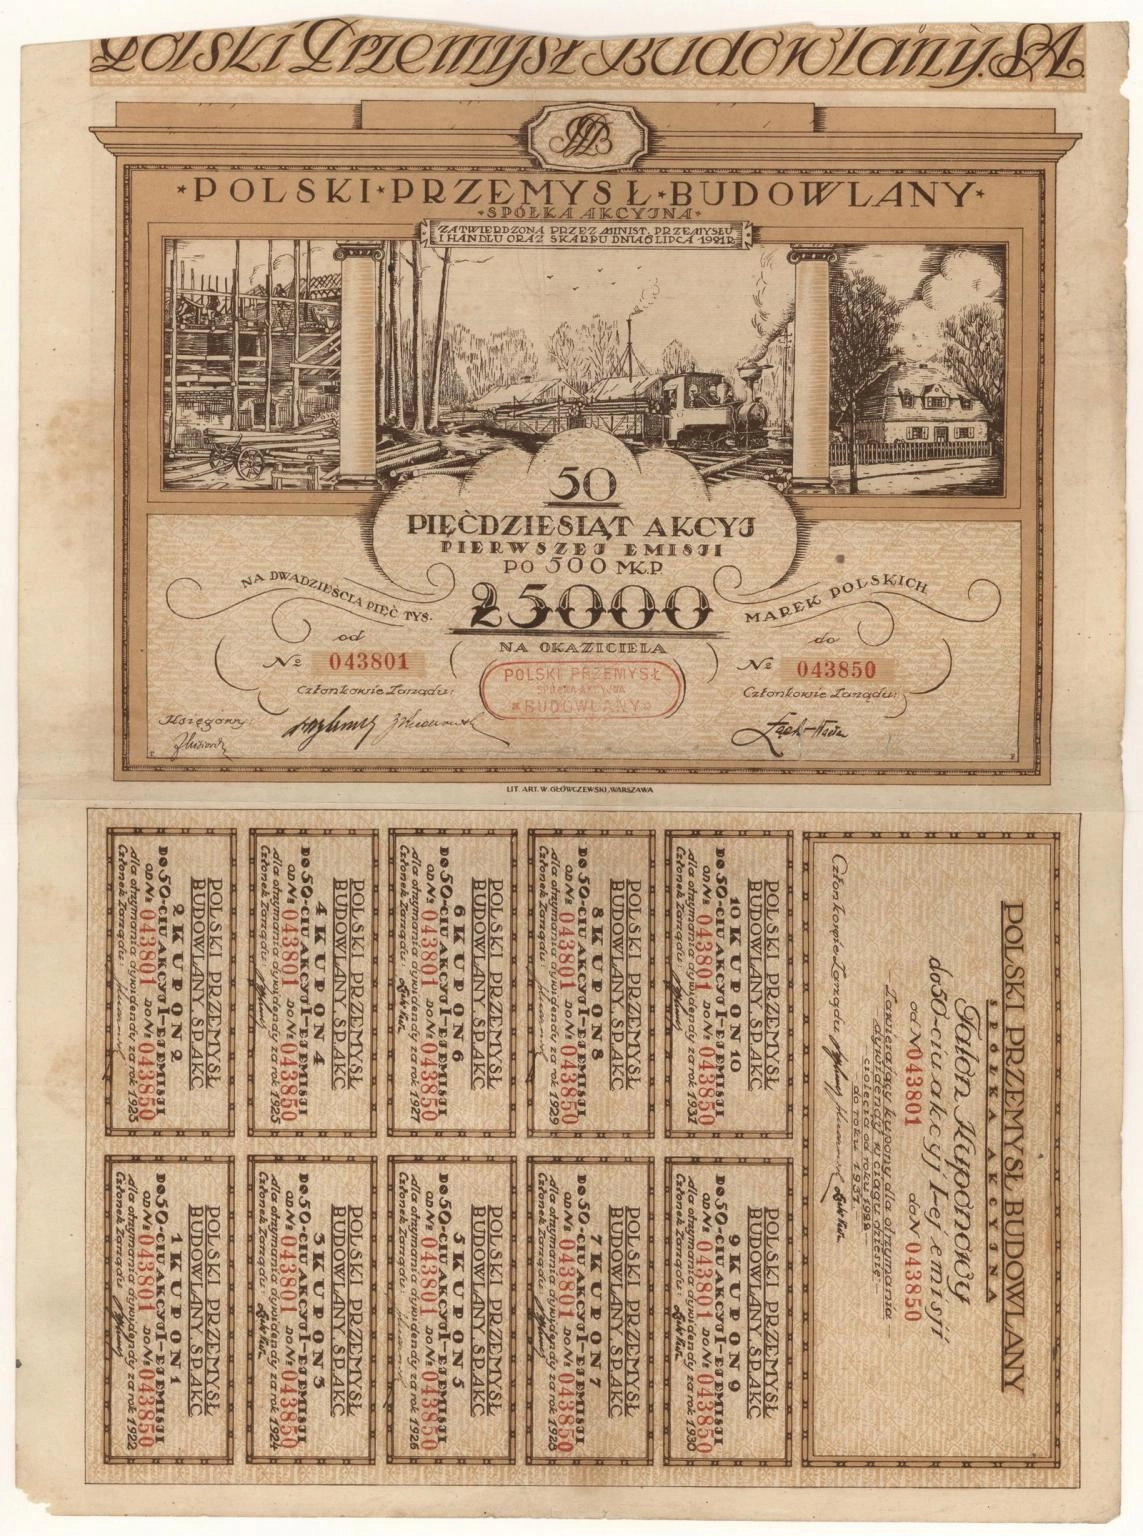 Polski Przemysł Budowlany. S.A.
PPB
POLSKI PRZEMYSŁ BUDOWLANY
SPÓŁKA AKCYJNA
ZATWIERDZONA PRZEZ MINIST. PRZEMYSŁU
I HANDLU ORAZ SKARPU DNIA 6 LIPCA 1921 R.
50
PIĘĆDZIESIĄT AKCYJ
PIERWSZEJ EMISJI
PO 500 MK.P.
NA DWADZIEŚCIA PIĘĆ TYS.
25000
MAREK POLSKICH
NA OKAZICIELA
od
№ 043801
do
№ 043850
Członkowie Zarządu:
Członkowie Zarządu:
POLSKI PRZEMYSŁ
SPÓŁKA AKCYJNA
BUDOWLANY
Księgowy:
LIT. ART. W. GŁÓWCZEWSKI, WARSZAWA
POLSKI PRZEMYSŁ BUDOWLANY
SPÓŁKA AKCYJNA
Talon Kuponowy
do 50-ciu akcyj I-ej emisji
od N 043801 do N 043850
Zawierający kupony dla otrzymania
dywidendy w ciągu dziesię-
ciolecia od roku 1922
do roku 1931
Członkowie Zarządu
POLSKI PRZEMYSŁ
BUDOWLANY. SP. AKC
10 KUPON 10
DO 50-CIU AKCYJ I-EJ EMISJI
OD № 043801 DO № 043850
dla otrzymania dywidendy za rok 1931
Członek Zarządu:
POLSKI PRZEMYSŁ
BUDOWLANY. SP. AKC
9 KUPON 9
DO 50-CIU AKCYJ I-EJ EMISJI
OD № 043801 DO № 043850
dla otrzymania dywidendy za rok 1930
Członek Zarządu:
POLSKI PRZEMYSŁ
BUDOWLANY. SP. AKC
8 KUPON 8
DO 50-CIU AKCYJ I-EJ EMISJI
OD № 043801 DO № 043850
dla otrzymania dywidendy za rok 1929
Członek Zarządu:
POLSKI PRZEMYSŁ
BUDOWLANY. SP. AKC
7 KUPON 7
DO 50-CIU AKCYJ I-EJ EMISJI
OD № 043801 DO № 043850
dla otrzymania dywidendy za rok 1928
Członek Zarządu:
POLSKI PRZEMYSŁ
BUDOWLANY. SP. AKC
6 KUPON 6
DO 50-CIU AKCYJ I-EJ EMISJI
OD № 043801 DO № 043850
dla otrzymania dywidendy za rok 1927
Członek Zarządu:
POLSKI PRZEMYSŁ
BUDOWLANY. SP. AKC
5 KUPON 5
DO 50-CIU AKCYJ I-EJ EMISJI
OD № 043801 DO № 043850
dla otrzymania dywidendy za rok 1926
Członek Zarządu:
POLSKI PRZEMYSŁ
BUDOWLANY. SP. AKC
4 KUPON 4
DO 50-CIU AKCYJ I-EJ EMISJI
OD № 043801 DO № 043850
dla otrzymania dywidendy za rok 1925
Członek Zarządu:
POLSKI PRZEMYSŁ
BUDOWLANY. SP. AKC
3 KUPON 3
DO 50-CIU AKCYJ I-EJ EMISJI
OD № 043801 DO № 043850
dla otrzymania dywidendy za rok 1924
Członek Zarządu:
POLSKI PRZEMYSŁ
BUDOWLANY. SP. AKC
2 KUPON 2
DO 50-CIU AKCYJ I-EJ EMISJI
OD № 043801 DO № 043850
dla otrzymania dywidendy za rok 1923
Członek Zarządu:
POLSKI PRZEMYSŁ
BUDOWLANY. SP. AKC
1 KUPON 1
DO 50-CIU AKCYJ I-EJ EMISJI
OD № 043801 DO № 043850
dla otrzymania dywidendy za rok 1922
Członek Zarządu: